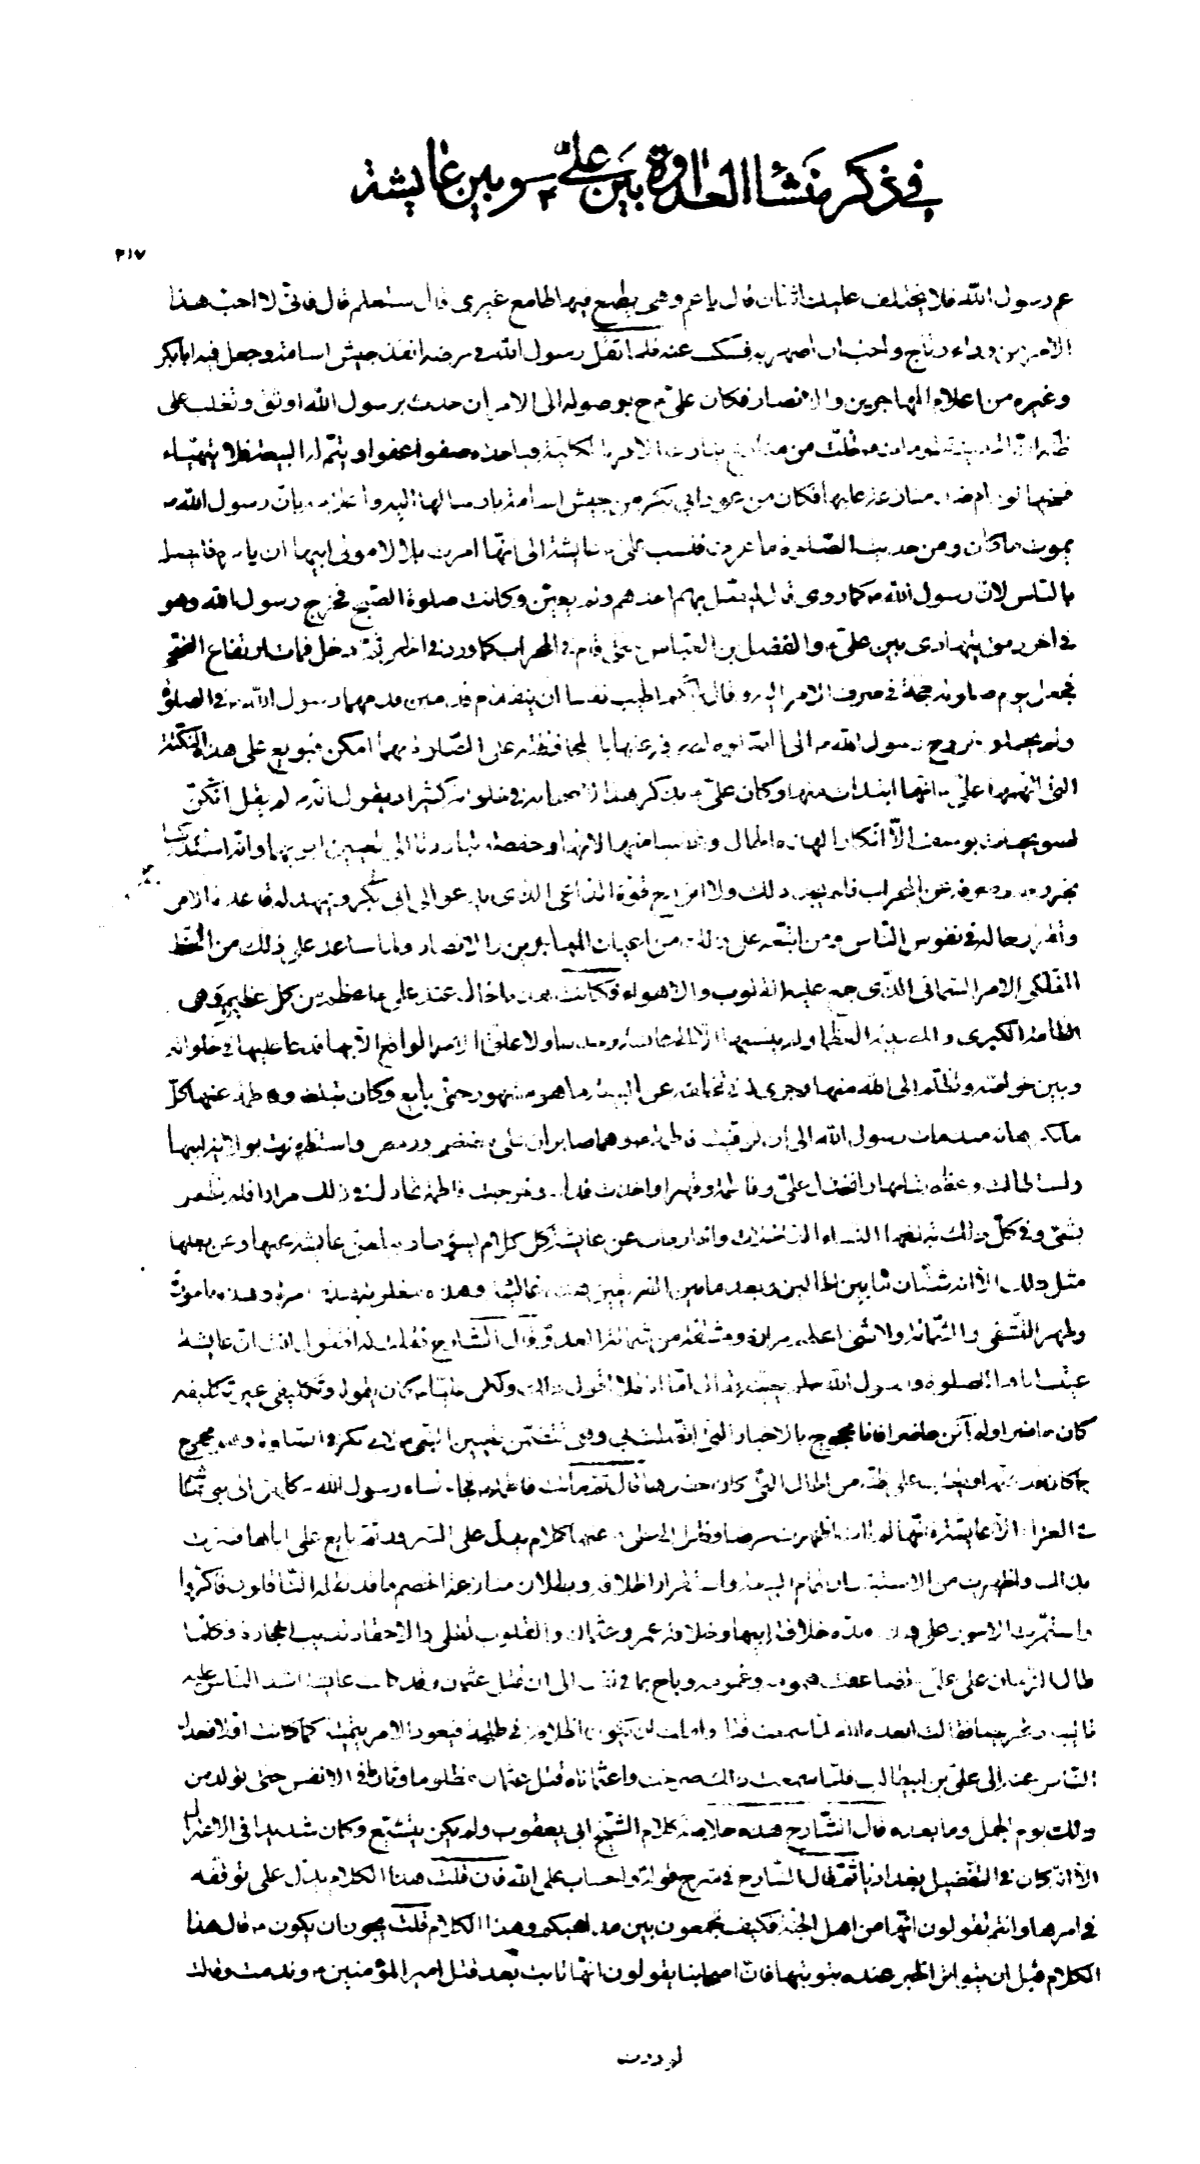 في ذكر منشأ العداوة بين علي وبين عايشة
٢١٧
عم رسول الله فلا يختلف عليك اثنان قال يا عم وهي يطمع فيها طامع غيري قال ستعلم قال فاني لا احب هذا
الامر من وراء رتاج واحب ان اصحر به فسكت عنه فلما ثقل رسول الله في مرضه انفذ جيش اسامة وجعل فيه ابا بكر
وغيره من اعلام المهاجرين والانصار فكان علي ح بوصوله الى الامر ان حدث برسول الله اوثق وتغلب على
منازعة عليها فكان من عود ابي بكر من جيش اسامة بارسالها اليه واعلامه بان رسول الله
يموت ما كان ومن حديث الصلوة ما عرف فنسب علي عايشة الى انها امرت بلالا مولى ابيها ان يامره فليصل
بالناس لان رسول الله كما روي قال ليصل بهم احدهم ولم يعين وكانت صلوة الصبح فخرج رسول الله وهو
في اخر رمق يتهادى بين علي والفضل بن العباس حتى قام في المحراب كما ورد في الخبر ثم دخل فمات ارتفاع الضحى
فجعل يوم صلوته حجة في صرف الامر اليه وقال ايكم اطيب نفسا ان يتقدم قدمين قدمهما رسول الله في الصلوة
ولم يحملوا خروج رسول الله الى الصلوة لصرفه عنها بل لمحافظته على الصلوة مهما امكن فبويع على هذه النكتة
التي اتهمها علي انها ابتدأت منها وكان علي يذكر هذا لاصحابه في خلواته كثيرا ويقول انه لم يقل انكن
لصويحبات يوسف الا انكارا لهذه الحال وغضبا منها لانها وحفصة تبادرتا الى تعيين ابويهما وانه استدركها
بخروجه وصرفه عن المحراب فلم يجد ذلك ولا اثر مع قوة الداعي الذي كان يدعو الى ابي بكر ويمهد له قاعدة الامر
وتقرر حاله في نفوس الناس ومن اتبعه على ذلك من اعيان المهاجرين والانصار ولما ساعد على ذلك من الحظ
الفلكي والامر السمائي الذي جمع عليه القلوب والاهواء فكانت هذه الحال عند علي اعظم من كل عظيم وهي
الطامة الكبرى والمصيبة العظمى ولم ينسبها الا الى عايشة وحدها ولا علق الامر الواقع الا بها فدعا عليها في خلواته
وبين خواصه وتظلم الى الله منها وجرى له في تخلفه عن البيعة ما هو مشهور حتى بايع وكان تبلغه وفاطمة عنها كل
ما يكرهانه منذ مات رسول الله الى ان توفيت فاطمة وهما صابران على مضض ورمض واستظهرت بولاية ابيها
واستطالت وعظم شأنها وانخذل علي وفاطمة وقهرا واخذت فدك وخرجت فاطمة تجادل في ذلك مرارا فلم تظفر
بشئ وفي كل ذلك تبلغها النساء الداخلات والخارجات عن عايشة كل كلام يسوؤها ويبلغن عايشة عنها وعن بعلها
مثل ذلك الا انه شتان ما بين الحالين وبعد ما بين الفريقين هذه غالبة وهذه مغلوبة هذه امرة وهذه مامورة
وظهر التشفي والشماتة ولا شئ اعظم مرارة ومشقة من شماتة العدو قال الشارح فقلت له افتقول انت ان عايشة
عينت اباها للصلوة ورسول الله لم يعينه فقال اما انا فلا اقول ذلك ولكن عليا كان يقوله وتكليفي غير تكليفه
كان حاضرا ولم اكن حاضرا فانا محجوج بالاخبار التي اتصلت بي وهي تتضمن تعيين النبي لابي بكر في الصلوة وهو محجوج
بما كان قد علمه او يغلب على ظنه من الحال التي كان حضرها قال ثم ماتت فاطمة فجاء نساء رسول الله كلهن الى بني هاشم
في العزاء الا عايشة فانها لم تأت اظهرت مرضا ونقل الى علي عنها كلام يدل على السرور ثم بايع علي اباها فسرت
بذلك واظهرت من الاستبشار بتمام البيعة واستقرار الخلافة وبطلان منازعة الخصم ما قد نقله الناقلون فاكثروا
واستمرت الامور على هذا مدة خلافة ابيها وخلافة عمر وعثمان والقلوب تغلي والاحقاد تذيب الحجارة وكلما
طال الزمان على علي تضاعفت همومه وغمومه وباح بما في نفسه الى ان قتل عثمان وقد كانت عايشة اشد الناس عليه
تاليبا وتحريضا فقالت ابعده الله لما سمعت قتله واملت ان تكون الخلافة في طلحة فيعود الامر تيمية كما كانت اولا فعدل
الناس عنه الى علي بن ابيطالب فلما سمعت ذلك صرخت واعثماناه قتل عثمان مظلوما وثار ما في الانفس حتى تولد من
ذلك يوم الجمل وما بعده قال الشارح هذه خلاصة كلام الشيخ ابي يعقوب ولم يكن يتشيع وكان شديدا في الاعتزال
الا انه كان في التفضيل بغداديا ثم قال الشارح في شرح قوله والحساب على الله فان قلت هذا الكلام يدل على توقفه
في امرها وانتم تقولون انها من اهل الجنة فكيف تجمعون بين مذهبكم وهذا الكلام قلت يجوز ان يكون قال هذا
الكلام قبل ان يتواتر الخبر عنده بتوبتها فان اصحابنا يقولون انها تابت بعد قتل امير المؤمنين وندمت وقالت
لوددت